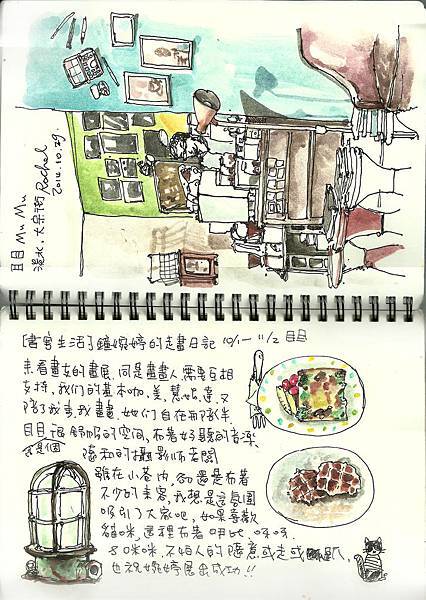 目目 Mu Mu
淡水.大呆街 Rachel
2014.10.29.
[書寫生活]鐘婉婷的走畫日記 10/1~11/2 目目
來看畫女的畫展,同是畫畫人需要互相
支持,我們的基本咖,美,慧
陪了我來,我畫畫,她們自在聊半
目目很舒服的空間,有著好聽的音樂,
還有個 隨和的攝影師老闆
雖在小巷內,卻還是有著
不少的來客,我想是這氛圍
吸引了大家吧,如果喜歡
貓咪,這裡有著呼呼、呀呀
80咪咪,不怕人的隨意或走或趴,
也祝婉婷展出成功!!